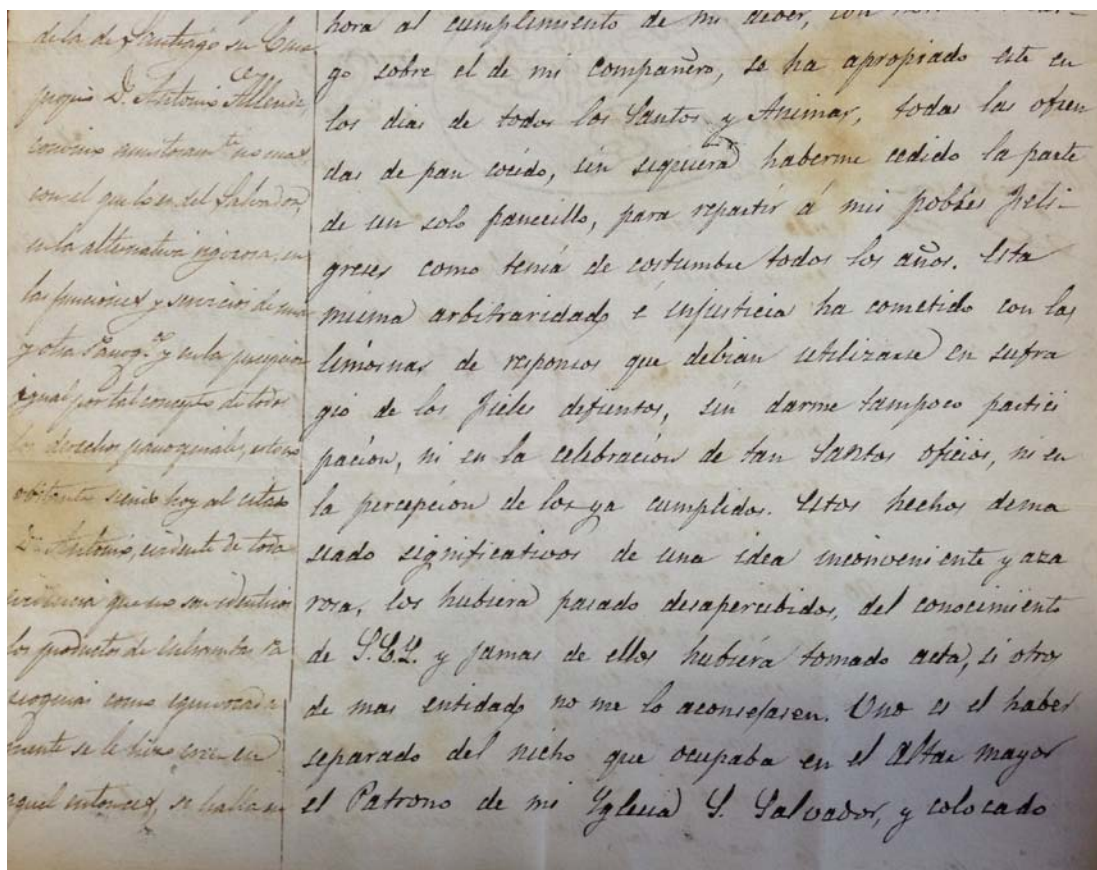 de la de Santiago su Cura
proquio D. Antonio Allende,
convino
con el que lo es del Salvador,
en la alternativa rigurosa, en
las funciones y servicios de una
y otra Parroq.ª y en la percepcion
igual por tal concepto de todos
los derechos parroquiales, esto no
obstante siendo hoy al citado
D. Antonio, evidente de toda
evidencia que no son identicos
los productos de entrambas Pa
rroquias como equivocada
mente se le hizo creer en
aquel entonces, se halla
hora al cumplimiento de mi deber, con
go sobre el de mi compañero, se ha apropiado este en
los dias de todos los Santos y Animas, todas las ofren
das de pan cocido, sin siquiera haberme cedido la parte
de un solo panecillo, para repartir á mis pobres Feli-
greses como tenia de costumbre todos los años. Esta
misma arbitraridad é injusticia ha cometido con las
limosnas de responsos que debian utilizarse en sufra
gio de los fieles difuntos, sin darme tampoco partici
pacion, ni en la celebracion de tan Santos oficios, ni en
la percepcion de los ya cumplidos. Estos hechos dema
siado significativos de una idea inconveniente y aza
rosa, los hubiera pasado desapercibidos, del conocimiento
de S.E.Y. y jamas de ellos hubiera tomado acta, si otros
de mas entidad no me lo aconsejasen. Uno es el haber
separado del nicho que ocupaba en el Altar mayor
el Patrono de mi Yglesia S. Salvador, y colocado